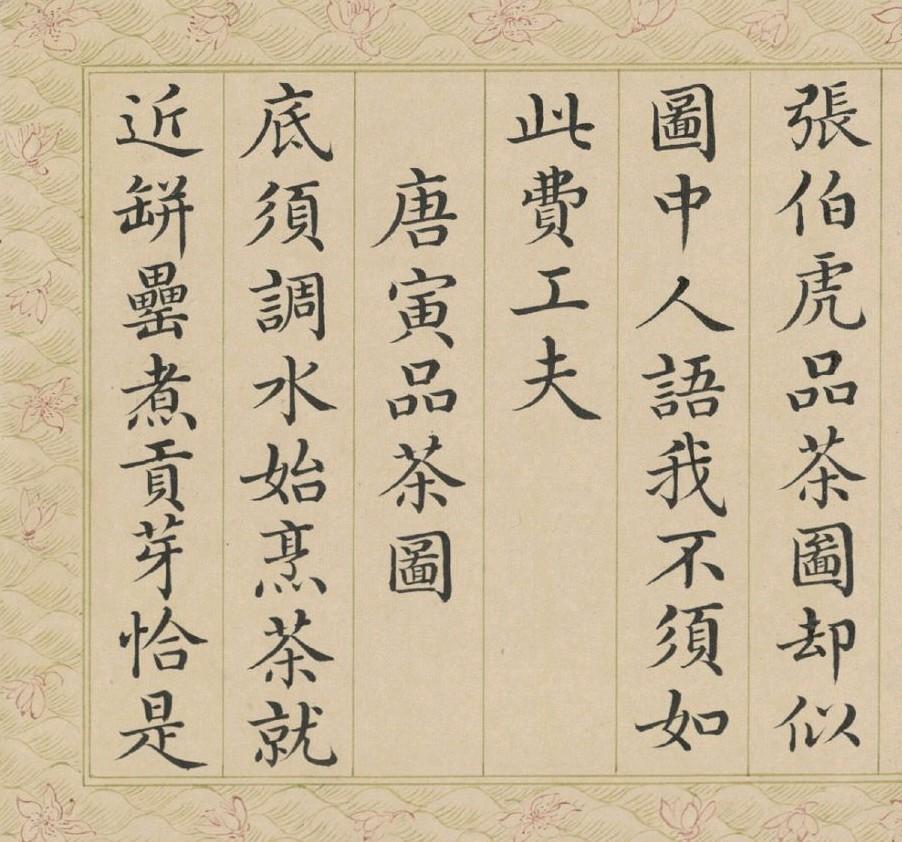 張伯虎品茶圖却似
圖中人語我不須如
此費工夫
唐寅品茶圖
底須調水始烹茶就
近缾罍煮貢芽恰是